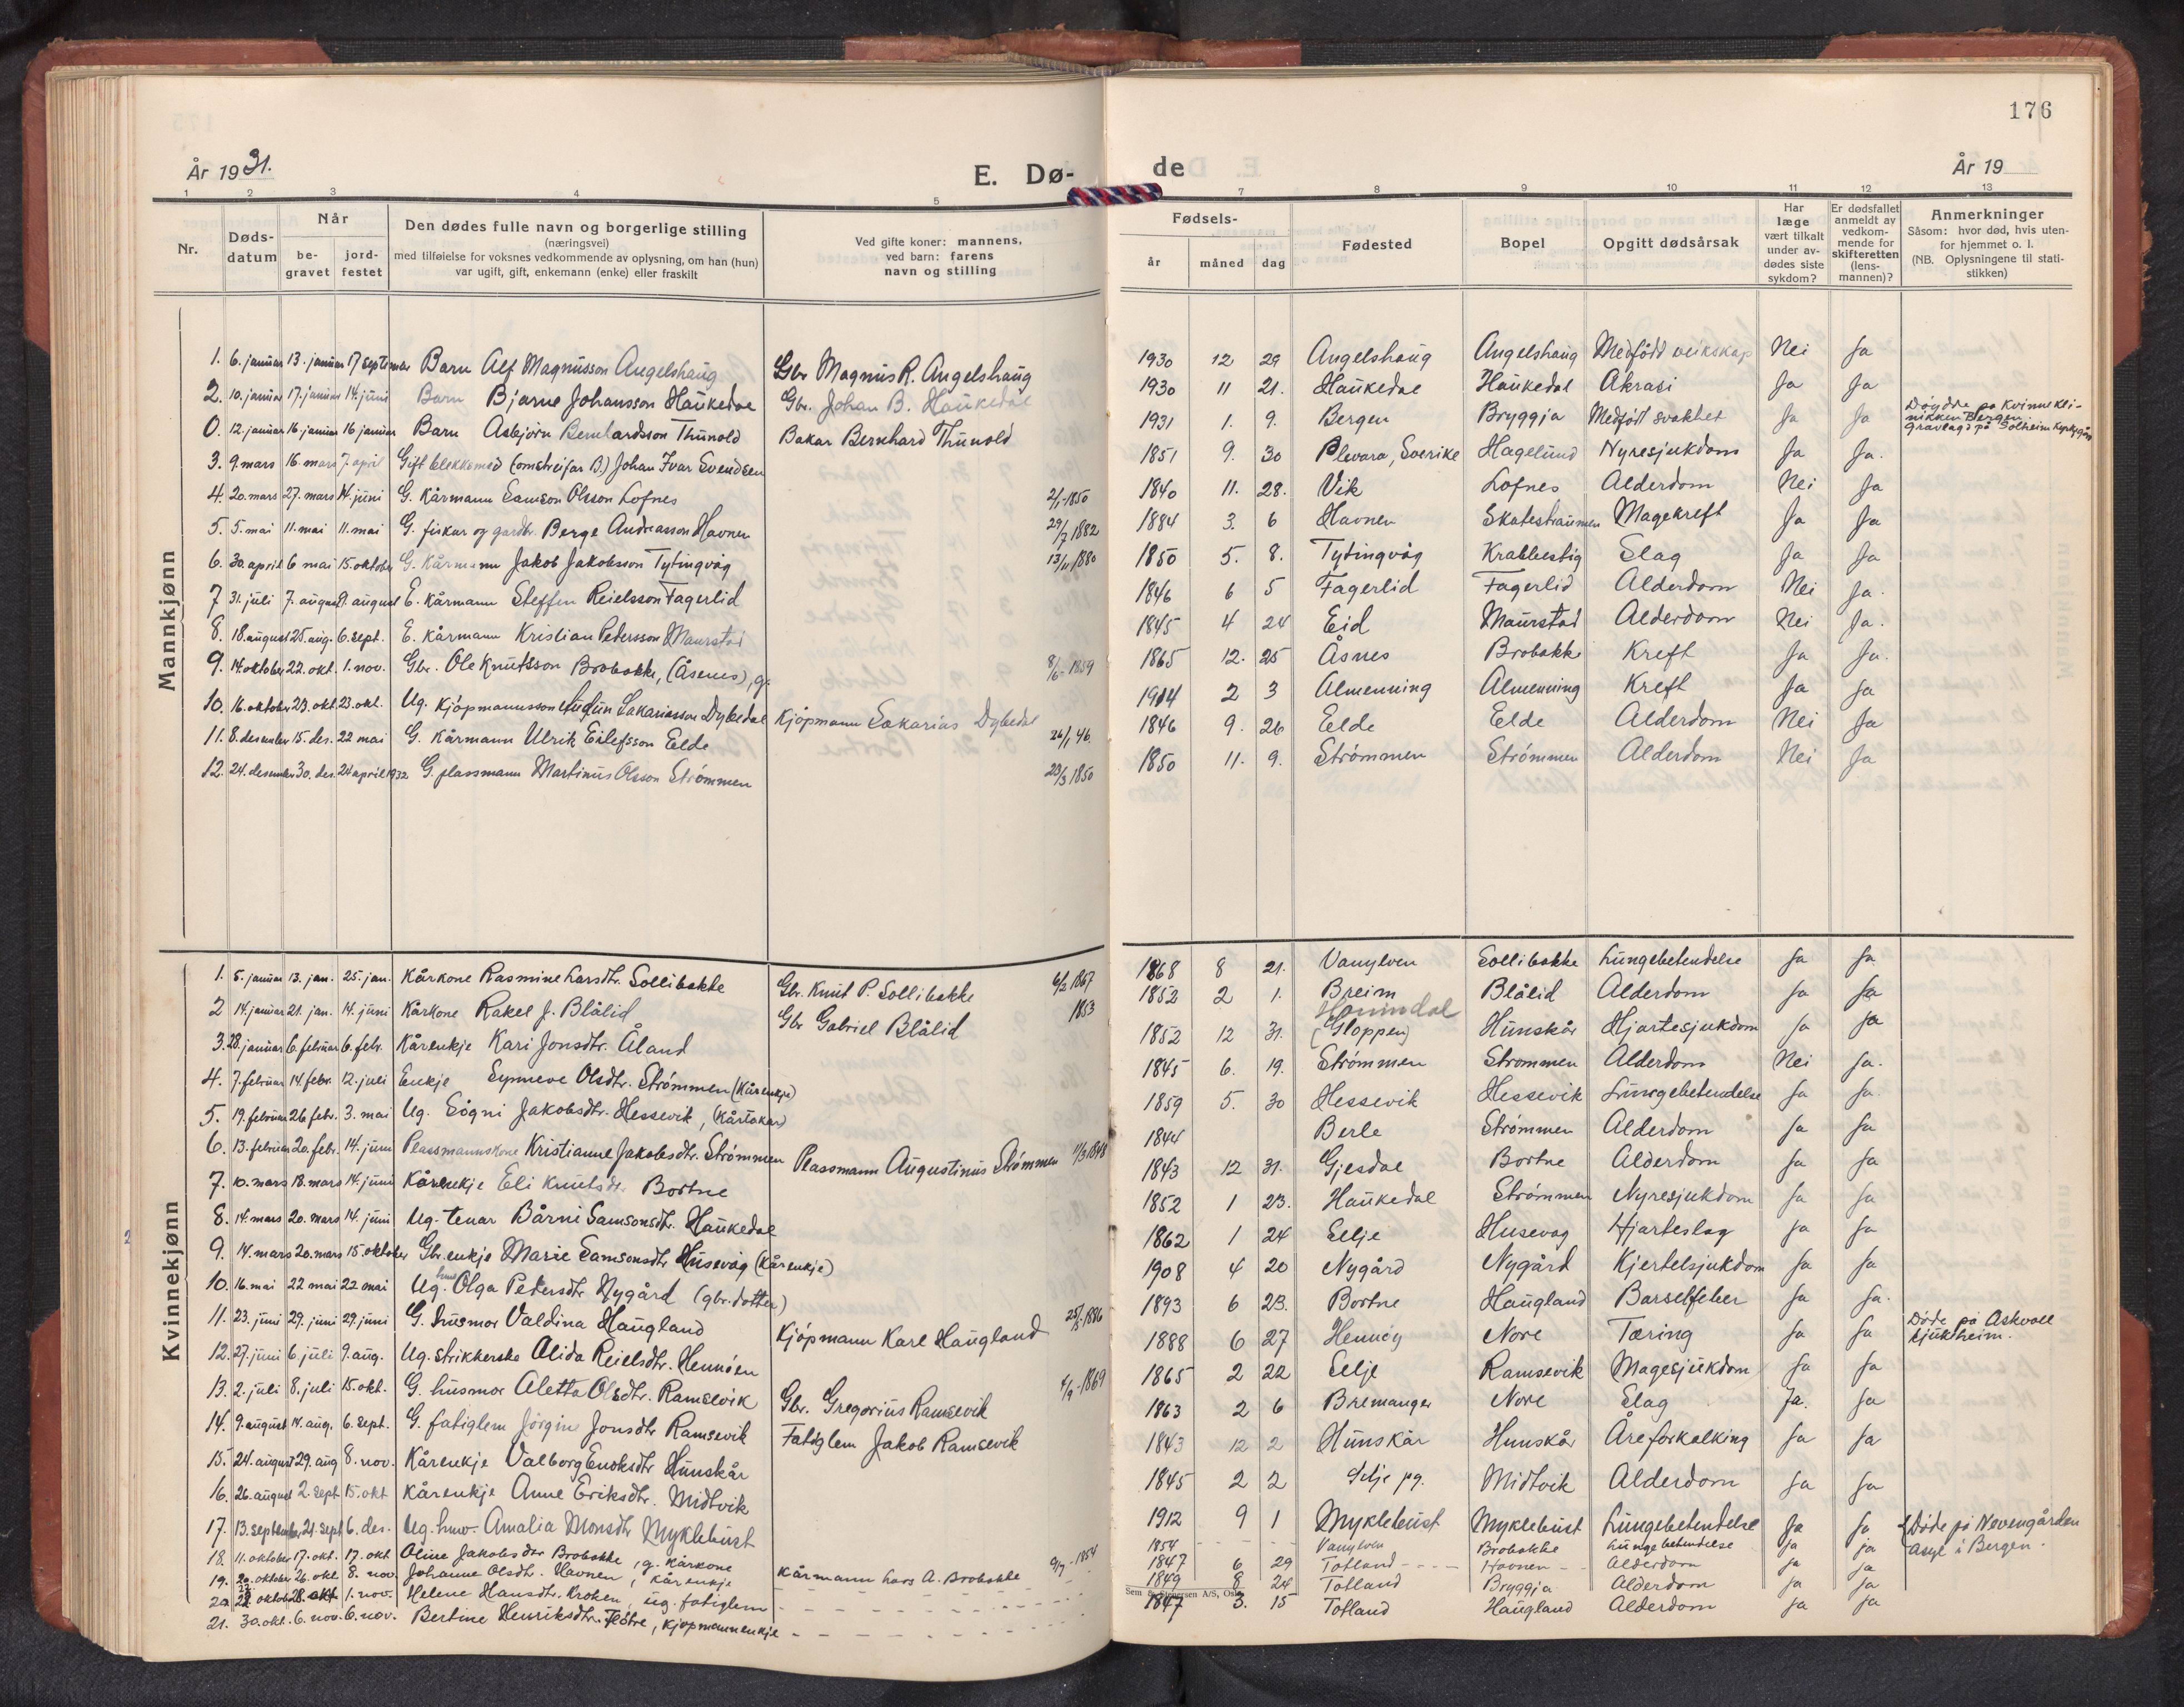 176
År 1931.
E. Dø-
de
År 19
1 2 3 4 5 7 8 9 10 11 12 13
Nr.
Døds-
datum
Når
be-
gravet
jord-
festet
Den dødes fulle navn og borgerlige stilling
(næringsvei)
med tilføielse for voksnes vedkommende av oplysning, om han (hun)
var ugift, gift, enkemann (enke) eller fraskilt
Ved gifte koner: mannens,
ved barn: farens
navn og stilling
Fødsels-
år måned dag
Fødested
Bopel
Opgitt dødsårsak
Har
læge
vært tilkalt
under av-
dødes siste
sykdom?
Er dødsfallet
anmeldt av
vedkom-
mende for
skifteretten
(lens-
mannen)?
Anmerkninger
Såsom: hvor død, hvis uten-
for hjemmet o. l.
(NB. Oplysningene til stati-
stikken)
Mannkjønn
1. 6. januar 13. januar 17 septemar Barn Alf Magnusson Angelshaug Gbr Magnus R. Angelshaug 1930 12 29 Angelshaug Angelshaug Medfödd veikskap Nei Ja
2. 10. januar 17. januar 14. juni Barn Bjarne Johansson Haukedal Gbr. Johan B. Haukedal 1930 11 21. Haukedal Haukedal Akrasi Ja Ja
0. 12. januar 16 januar 16 januar Barn Asbjörn Bernhardsson Thunold Bakar Bernhard Thunold 1931 1. 9. Bergen Bryggja Medfött svakhet Ja Ja Döydde på Kvinnekli-
nikken Bergen.
Gravlagd på Solheim Kyrkjegård
3. 9. mars 16 mars 7. april Gift blekksmed (omstreifar B.) Johan Ivar Svendsen 1851 9. 30 Plevara, Sverike Hagelund Nyresjukdom Ja Ja.
4. 20. mars 27. mars 14. juni G. Kårmann Samson Olsson Lofnes 2/1-1850 1840 11. 28. Vik Lofnes Alderdom Nei Ja
5. 5. mai 11. mai 11. mai G. fiskar og gardbr. Berge Andreasson Havnen 29/7 1882 1884 3. 6 Havnen Skatestraumen Magekreft Ja Ja
6. 30. april 6 mai 15. oktober G. Kårmann Jakob Jakobsson Tytingvåg 13/11 1880 1850 5. 8. Tytingvåg Krabbestig Slag Ja Ja
7 31. juli 7. august 9. august E. Kårmann Steffen Reielsson Fagerlid 1846 6 5 Fagerlid Fagerlid Alderdom Nei Ja.
8. 18. august 25. aug. 6. sept. E. Kårmann Kristian Petersson Maurstad 1845 4 24 Eid Maurstad Alderdom Nei Ja.
9. 14. oktober 22. okt. 1. nov. Gbr. Ole Knutsson Brobakke, (Åsenes), g. 8/6-1859 1865 12. 25 Åsnes Brobakke Kreft Ja Ja.
10. 16. oktober 23. okt. 23. okt. Ug. Kjöpmannsson Sakariasson Dybedal Kjöpmann Sakarias Dybedal 1914 2 3 Almenning Almenning Kreft Ja Ja
11. 8. desember 15. des. 22 mai G. Kårmann Ulrik Eilefsson Elde 26/1 46. 1846 9. 26 Elde Elde Alderdom Nei Ja
12. 24. desember 30. des. 24 april 1932 G. plassmann Martinus Olsson Strömmen 23/3 1850 1850 11. 9. Strömmen Strömmen Alderdom Nei Ja
Kvinnekjønn
1. 5. januar 13. jan. 25. jan. Kårkone Rasmine Larsdtr. Sollibakke Gbr. Knut P. Sollibakke 6/2 1867 1868 8 21. Vanylven Sollibakke Lungebetendelse Ja Ja
2 14. januar 21. jan. 14. juni Kårkone Rakel J. Blålid Gbr Gabriel Blålid 1853 1852 2 1. Breim Blålid Alderdom Ja Ja
3. 28. januar 6. februar 6. febr. Kårenkje Kari Jonsdtr. Åland 1852 12 31. Hornindal (Gloppen) Hunskår Hjartesjukdom Ja Ja
4. 7. februar 14. febr. 12. juli Enkje Synneve Olsdtr. Strömmen (Kårenkje) 1845 6. 19. Strömmen Strömmen Alderdom Nei Ja.
5. 19. februar 26 febr. 3. mai Ug. Sögni Jakobsdtr. Hessevik, (Kårtakar) 1859 5. 30 Hessevik Hessevik Lungebetendelse Ja Ja
6. 13. februar 20. febr. 14. juni Plassmannskone Kristianne Jakobsdtr. Strömmen Plassmann Augustinus Strömmen 1844 Berle Strömmen Alderdom Ja Ja
7. 10. mars 18. mars 14. juni Kårenkje Eli Knutsdr. Bortne 1843 12 31. Gjesdal Bortne Alderdom Ja Ja
8. 14. mars 20. mars 14. juni Ug. tenar Bårni Samsonsdtr. Haukedal 1852 1 23. Haukedal Strömmen Nyresjukdom Ja Ja
9. 14. mars 20. mars 15. oktober Gbr. enkje Marie Samsonsdtr Husevåg (Kårenkje) 1862 1 24 Selje Husevåg Hjarteslag Ja Ja
10. 16. mai 22 mai 22 mai Ug. Olga Petersdtr Nygård (gbr. dotter) 1908 4 20 Nygård Nygård Kjertelsjukdom Ja Ja
11. 23. juni 29. juni 29. juni G. husmor Valdina Haugland Kjöpmann Karl Haugland 1893 6 23. Bortne Haugland Barselfeber Ja Ja.
12. 27. juni 6 juli 9. aug. Ug. strikkerske Alida Reielsdtr. Hennöen 1888 6 27 Hennöy Nore Tæring Ja Ja Döde på Askvoll
sjukheim.
13. 2. juli 8. juli 15. okt. G. husmor Aletta Olsdtr. Ramsevik Gbr. Gregorius Ramsevik 1865 2 22 Selje Ramsevik Magesjukdom Ja Ja
14. 9. august 14. aug. 6. sept. G. fatiglem Jörgine Jonsdtr Ramsevik Fatiglem Jakob Ramsevik 1863 2 6 Bremanger Nore Slag Ja. Ja
15. 24. august 29. aug 8. nov. Kårenkje Valborg Enoksdtr Hunskår 1843 12 2 Hunskår Hunskår Åreforkalking Ja Ja
16. 26. august 2. sept 15. okt Kårenkje Anne Eriksdtr. Midtvik 1845 2 2 Selje pg. Midtvik Alderdom Ja Ja
17. 13. september 21. sept 6. des. Ug. hus. Amalia Monsdtr Myklebust 1912 9 1 Myklebust Myklebust Lungebetendelse Ja Ja Döde på Nevengården
asyl i Bergen.
18. 11. oktober 17. okt. 17. okt Oline Jakobsdtr Brobakke, g. Kårkone Kårmann Lars A. Brobakke 1854 - - - - Vanylven Brobakke Lungebetendelse Ja Ja
19. 20. oktober 26. okt. 8. nov Johanne Olsdtr. Havnen, Kårenkje 1847 6 29 Totland Havnen Alderdom Ja Ja
20 oktober 28. okt 1. nov. Helene Hansdtr. Kroken, ug. fatiglem 1849 8 24 Totland Bryggja Alderdom Ja Ja
21. 30. okt. 6. nov. 6. nov. Bertine Henriksdtr. Flötre, Kjöpmannenkje 1847 3. 15 Totland Haugland Alderdom Ja Ja
Sem & Stenersen A/S, Oslo